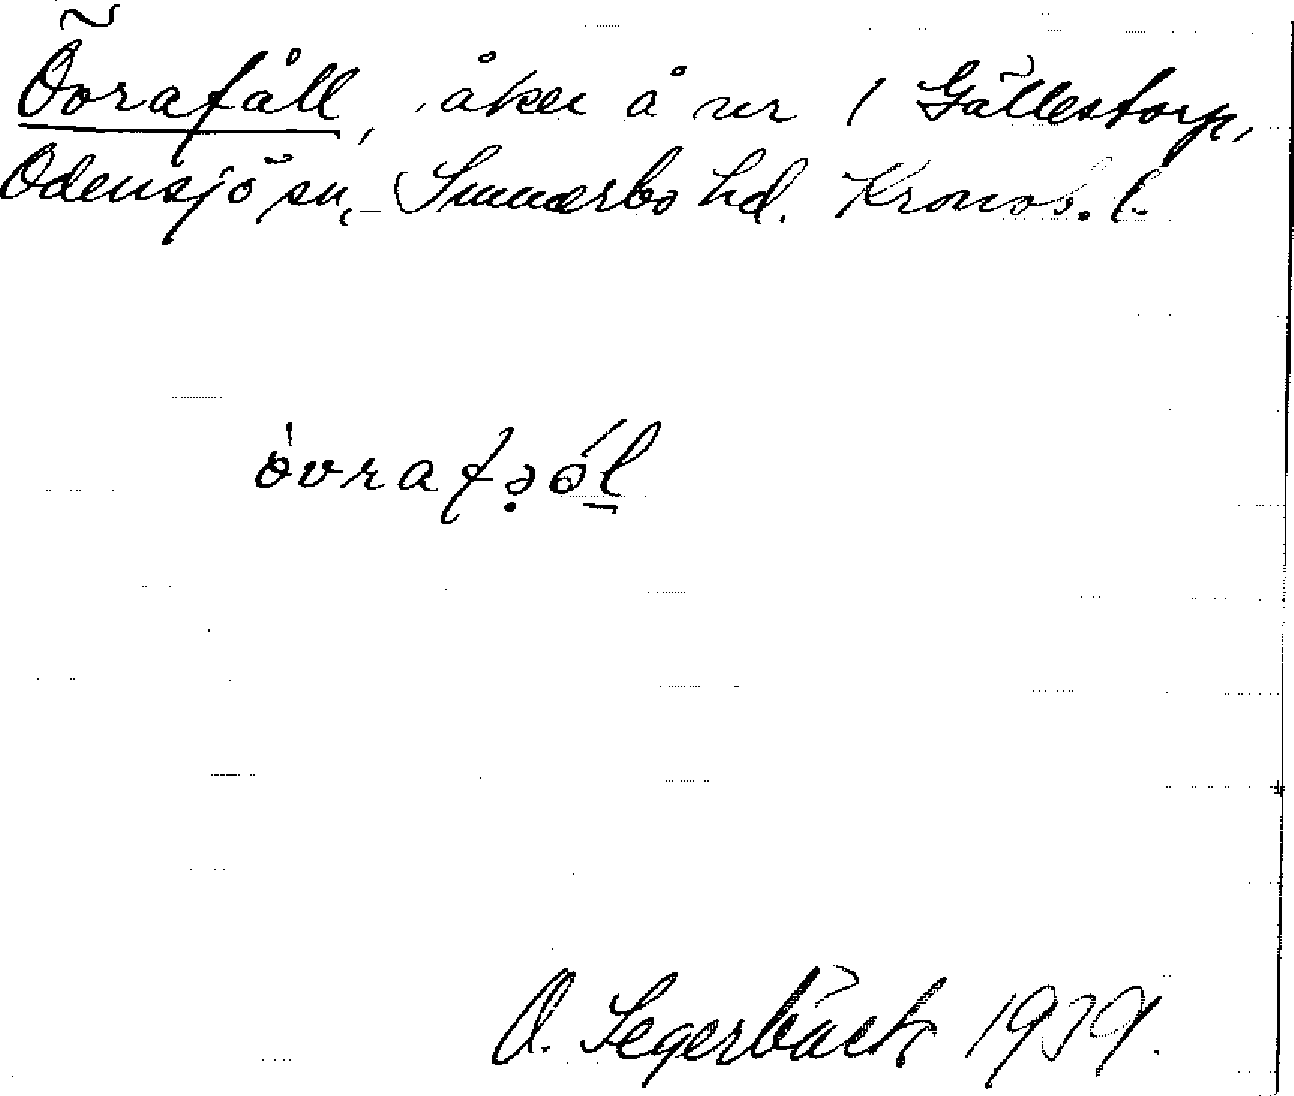 Övrafåll, åker å nr 1 Gällestorp,
Odensjö sn, Sunnerbo hd. Kronob. l.
övrafəól
O. Segerbäck 1939.